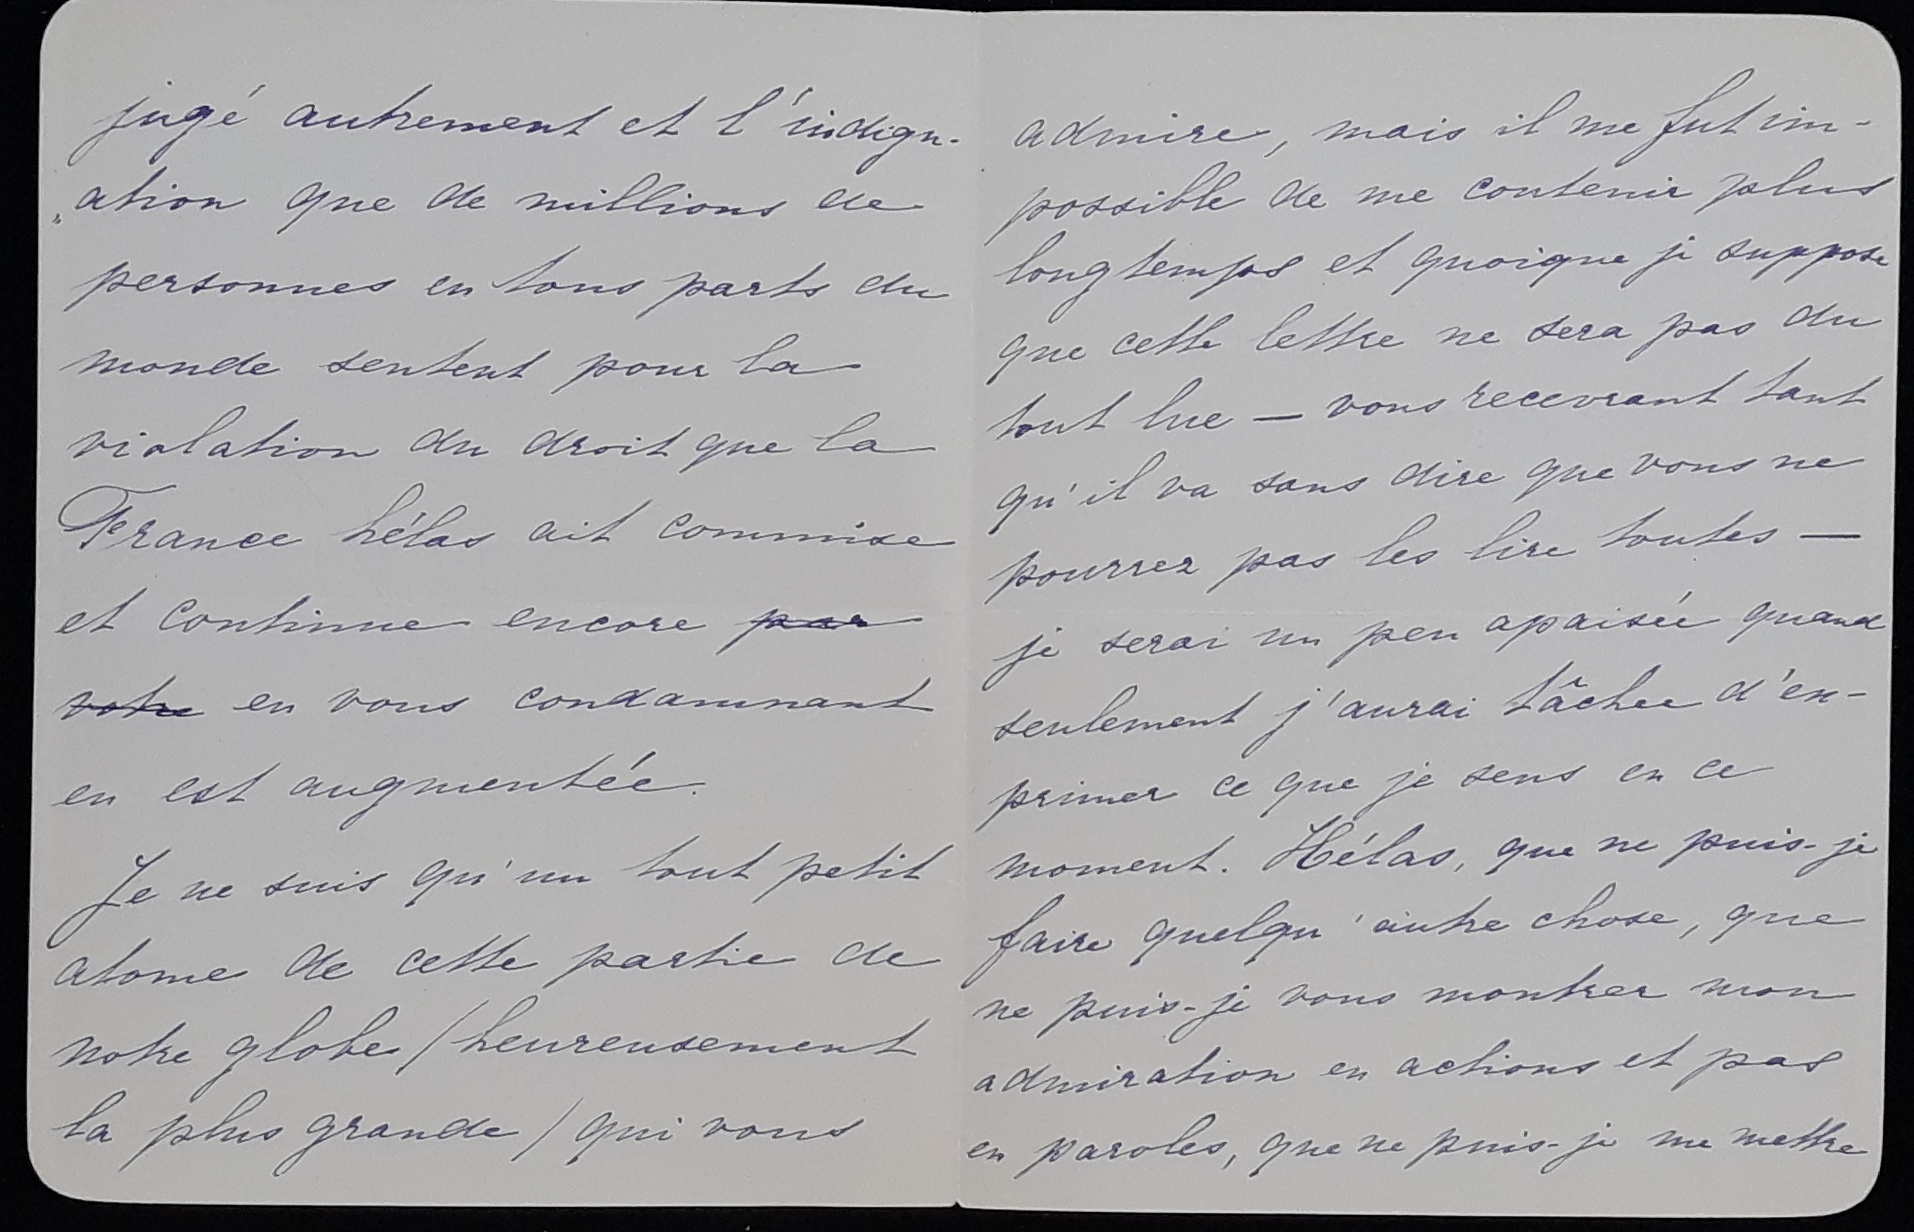 jugé autrement et l'indign-
„ation que de millions de
personnes en tous parts du
monde sentent pour la
violation du droit que la
France hélas ait commise
et continue encore par
votre en vous condamnant
en est augmentée.
Je ne suis qu'un tout petit
atome de cette partie de
notre globe /heureusement
la plus grande/ qui vous
admire, mais il me fut im-
possible de me contenir plus
longtemps et quoique je suppose
que cette lettre ne sera pas du
tout lue — vous recevrant tant
qu'il va sans dire que vous ne
pourrez pas les lire toutes —
je serai un peu apaisée quand
seulement j'aurai tâchee d'ex-
primer ce que je sens en ce
moment. Hélas, que ne puis-je
faire quelqu'autre chose, que
ne puis-je vous montrer mon
admiration en actions et pas
en paroles, que ne puis-je me mettre